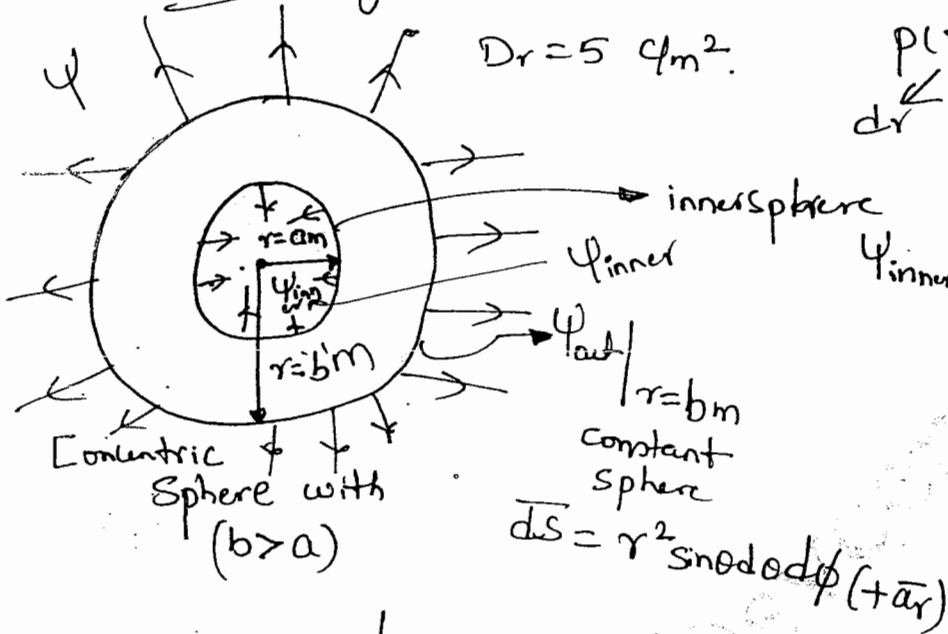 ψ
Dr = 5 c/m².
P(
dr
innersphere
r=am
ψinner
ψinner
ψinn
ψout|r=bm
r='b'm
constant
sphere
Concentric
Sphere with
(b>a)
d̅s̅ = r² sinθdθdϕ (+a̅r)